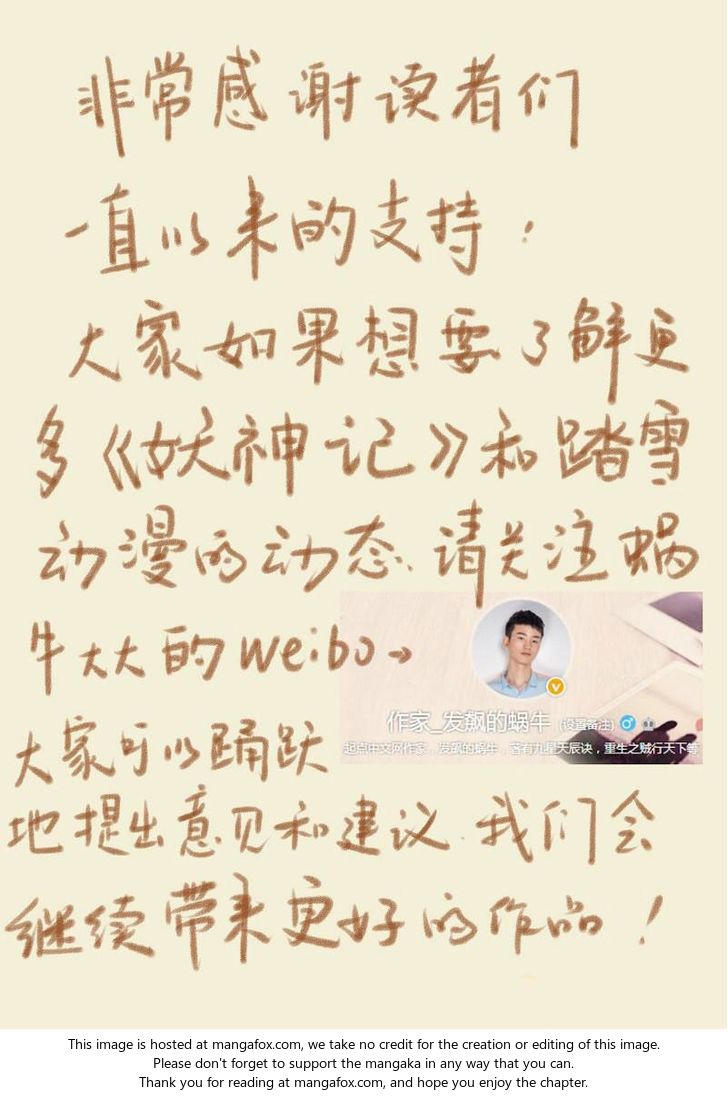 非常感谢读者们
一直以来的支持.
大家如果想要了解更
多《妖神记》和踏雪
动漫的动态.请关注蜗
牛大大的weibo→
作家_发飙的蜗牛 (设置备注)
起点中文网作家，发飙的蜗牛，著有九星天辰诀，重生之贼行天下等
大家可以踊跃
地提出意见和建议.我们会
继续带来更好的作品！
This image is hosted at mangafox.com, we take no credit for the creation or editing of this image.
Please don't forget to support the mangaka in any way that you can.
Thank you for reading at mangafox.com, and hope you enjoy the chapter.